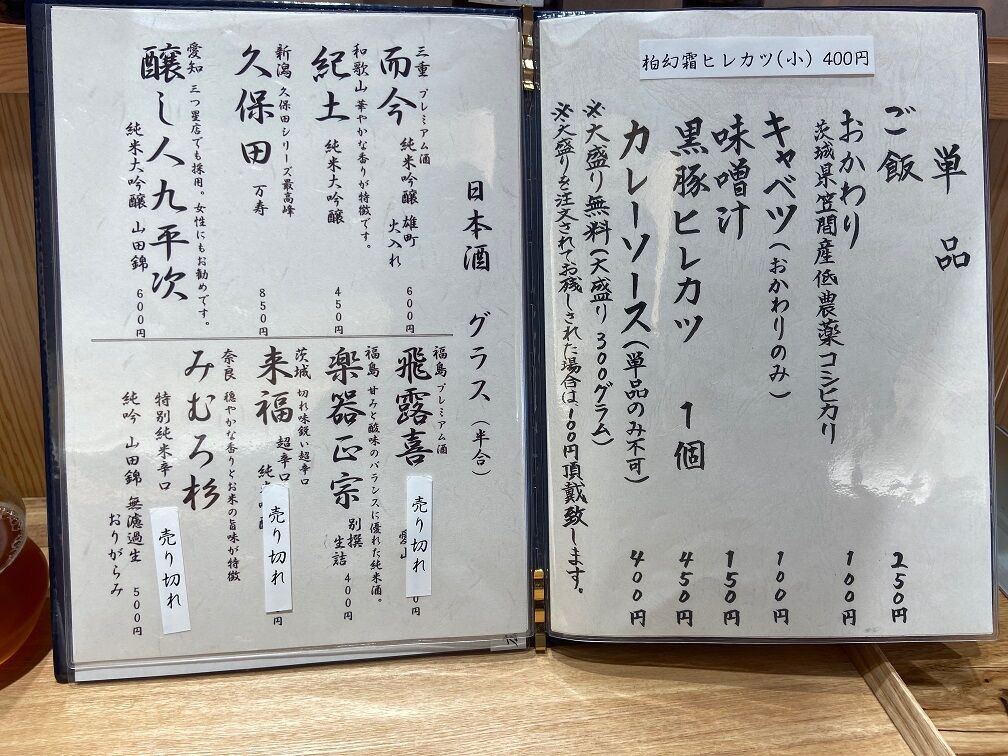 柏幻霜ヒレカツ(小) 400円
単品
ご飯 250円
おかわり 100円
茨城県笠間産低農薬コシヒカリ
キャベツ(おかわりのみ) 100円
味噌汁 150円
黒豚ヒレカツ 1個 450円
カレーソース(単品のみ不可) 400円
※大盛り無料(大盛り300グラム)
※大盛りを注文されてお残しされた場合は、100円頂戴致します。
日本酒 グラス(半合)
三重 プレミアム酒
而今 純米吟醸 雄町 火入れ 600円
和歌山 華やかな香りが特徴です。
紀土 純米大吟醸 450円
新潟 久保田シリーズ最高峰
久保田 万寿 850円
愛知 三つ星店でも採用。女性にもお勧めです。
醸し人九平次
純米大吟醸 山田錦 600円
福島 プレミアム酒
飛露喜
売り切れ
福島 甘みと酸味のバランスに優れた純米酒。
楽器正宗 別撰 生詰 400円
茨城 切れ味鋭い超辛口
来福 超辛口 純
売り切れ 円
奈良 穏やかな香りとお米の旨味が特徴
みむろ杉
特別純米辛口
売り切れ
純吟 山田錦 無濾過生 おりがらみ 500円